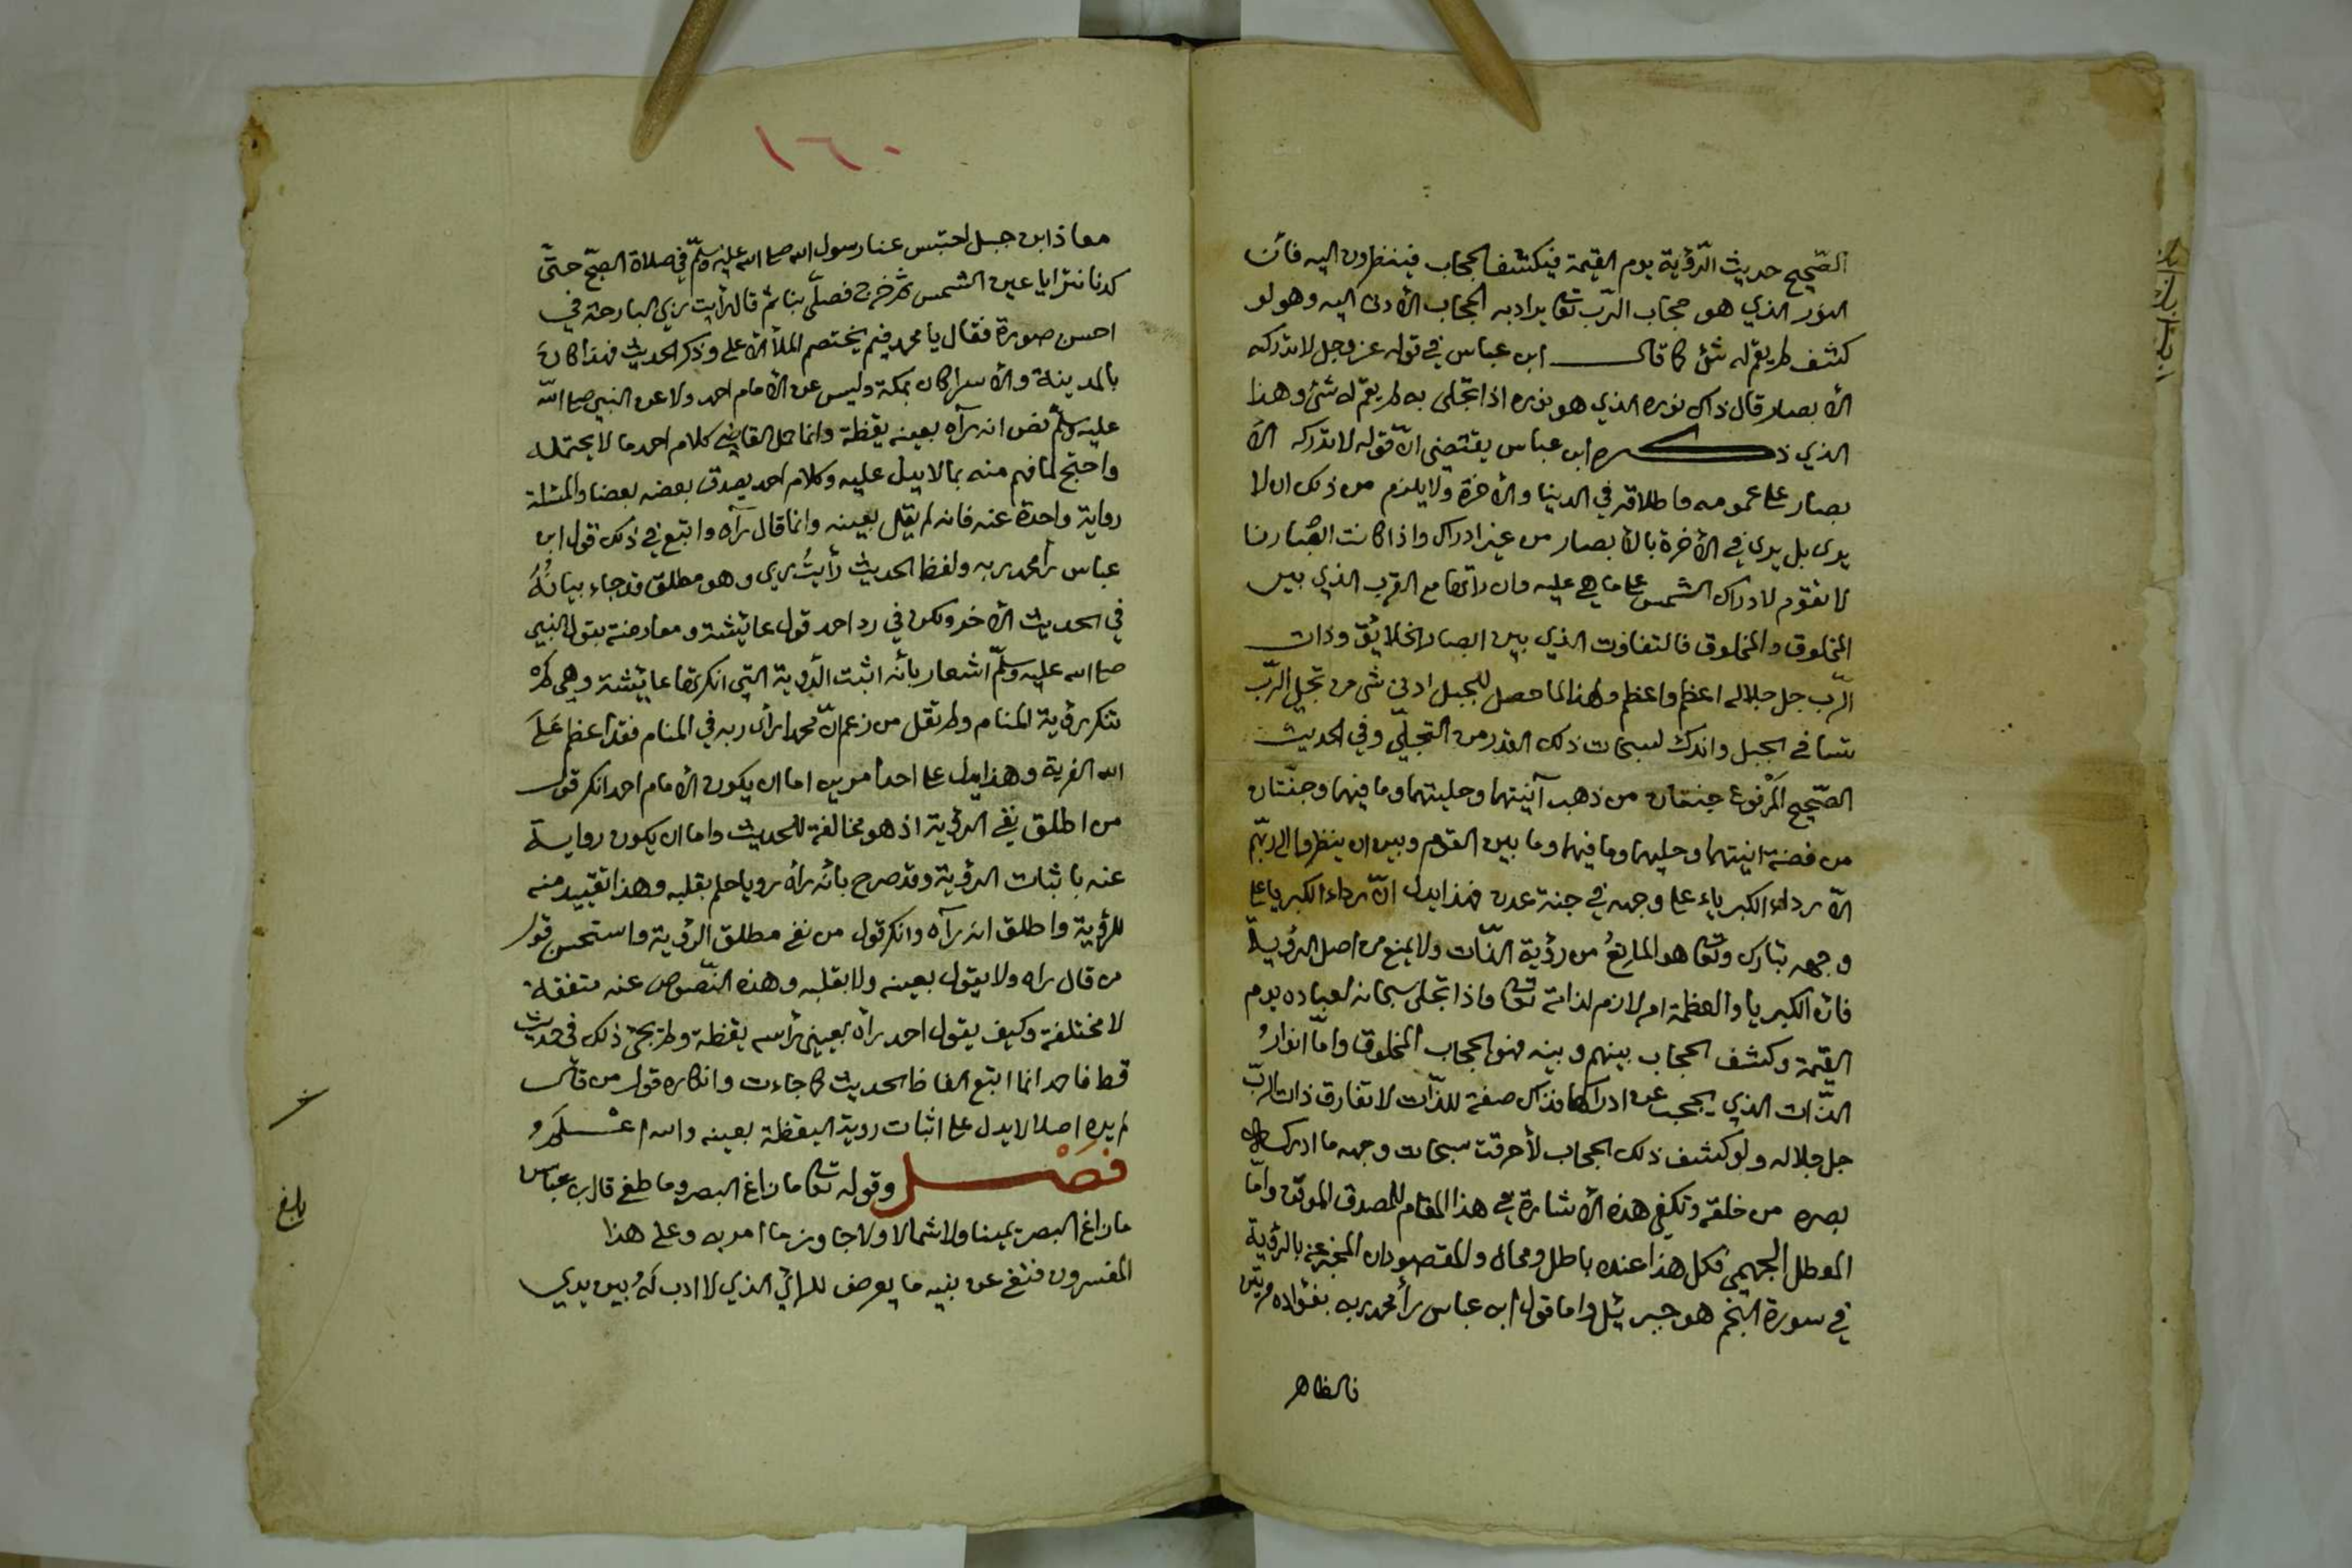 الصّحيح حديث الرّؤية يوم القيمة فيكشف الحجاب فينظرون اليه فأن
النور الذي هو حجاب الرّب تعا يراد به الحجاب الأدنى اليه وهو لو
كشف لم يقم له شئ كما قال ابن عباس في قوله عز وجل لا تدركه
الأ بصار قال ذاك نوره الذي هو نوره اذا تجلى به لم يقم له شئ وهذا
الذي ذكره ابن عباس يقتضى انّ قوله لا تدركه الأ
بصار على عمومه واطلاقه في الدنيا والأخرة ولا يلزم من ذلك ان لا
يرى بل يرى في الأخرة بالأبصار من غير ادراك واذا كانت ابصارنا
لا تقوم لادراك الشمس على ما هي عليه وان راتها مع القرب الذي بين
المخلوق والمخلوق فالتفاوت الذي بين ابصار الخلايق وذات
الرّب جل جلاله اعظم واعظم ولهذا لما حصل للجبل ادنى شى من تجلى الرّب
تسافى الجبل واندك لسبحات ذلك القدر من التجلّي وفي الحديث
الصّحيح المرفوع جنتان من ذهب آنيتهما وحليتهما وما فيهما وجنّتان
من فضة انيتهما وحليهما وما فيهما وما بين القوم وبين ان ينظروا الى ربّهم
الاّ رداء الكبرياء على وجهه في جنة عدن فهذا يدل انّ رداء الكبريا على
وجهه تبارك وتعا هو المانعُ من رؤية الذّات ولا يمنع من اصل الرؤية
فان الكبريا والعظمة امر لازم لذاته تعا واذا تجلى سبحانه لعباده يوم
القيمة وكشف الحجاب بينهم وبينه فهو الحجاب المخلوق واما انوارُ
الذّات الذي يحجب عن ادراكها فذاك صفة للذّات لا تفارق ذات الربّ
جل جلاله ولو كشف ذلك الحجاب لأحرقت سبحات وجهه ما ادركه
بصره من خلقه وتكفي هذه الأشارة في هذا المقام للمصدق الموقن وامّا
المعطل الجهمي فكل هذا عنده باطل ومحال والمقصود ان المخبر عنه بالرؤية
في سورة النجم هو جبرئيل واما قول ابن عباس رأ محمد ربه بفؤاده مرتين
فالظاهر
١٦٠
معاذ ابن جبل احتبس عنا رسول الله صلى الله عليه وسلّم في صلاة الصبّح حتىّ
كدنا نترايا عين الشمس ثم خرج فصلّى بنا ثم قال رأيت ربي البارحة في
احسن صورة فقال يا محمد فيم يختصم الملأ الأعلى وذكر الحديث فهذا كانَ
بالمدينة والأسرا كان بمكة وليس عن الأمام احمد ولا عن النبي صلى الله
عليه وسلّم نص انه رآه بعينه يقظة وانما حمل القاضي كلام احمد ما لا يحتمله
واحتج لما فهم منه بما لا يدل عليه وكلام احمد يصدق بعضه بعضا والمسئلة
رواية واحدة عنه فانه لم يقل بعينه وانما قال رآه واتبع في ذلك قول ابن
عباس رأ محمد ربه ولفظ الحديث رأيتُ ربي وهو مطلق وقد جاء بيانُهُ
في الحديث الأخر ولكن في رد احمد قول عائيشة ومعارضته بقول النبي
صلى الله عليه وسلّم اشعار بأنه اثبت الرؤية التي انكرتها عائيشة وهي لم
تنكر رؤية المنام ولم تقل من زعم انّ محمدا رأى ربه في المنام فقد اعظم عَلَى
الله الفرية وهذا يدل على احد امرين اما ان يكون الأمام احمد انكر قول
من اطلق نفي الرؤية اذ هو مخالفة للحديث واما ان يكون رواية
عنه باثبات الرؤية وقد صرح بأنه رأه رويا حلم بقلبه وهذا تقييد منه
للرؤية واطلق انه رآه وانكر قول من نفى مطلق الرؤية واستحسن قول
من قال راه ولا يقول بعينه ولا بقلبه وهذه النّصوص عنه متفقة
لا مختلفة وكيف يقول احمد رأه بعيني رأسه يقظة ولم يجئ ذلك في حديث
قط فاحمد انما اتبع الفاظ الحديث كما جاءت وانكاره قول من قال
لم يره اصلا لا يدل على اثبات روية اليقظة بعينه والله اعْلَمُ
فَصْل وقوله تعا ما زاغ البصر وما طغى قال ابن عباس
ما زاغ البصر يمينا ولا شمالا ولا جاوز ما امر به وعلى هذا
المفسرون فنفى عن نبيه ما يعرض للرائي الذي لا ادب لهُ بين يدي
بلغ